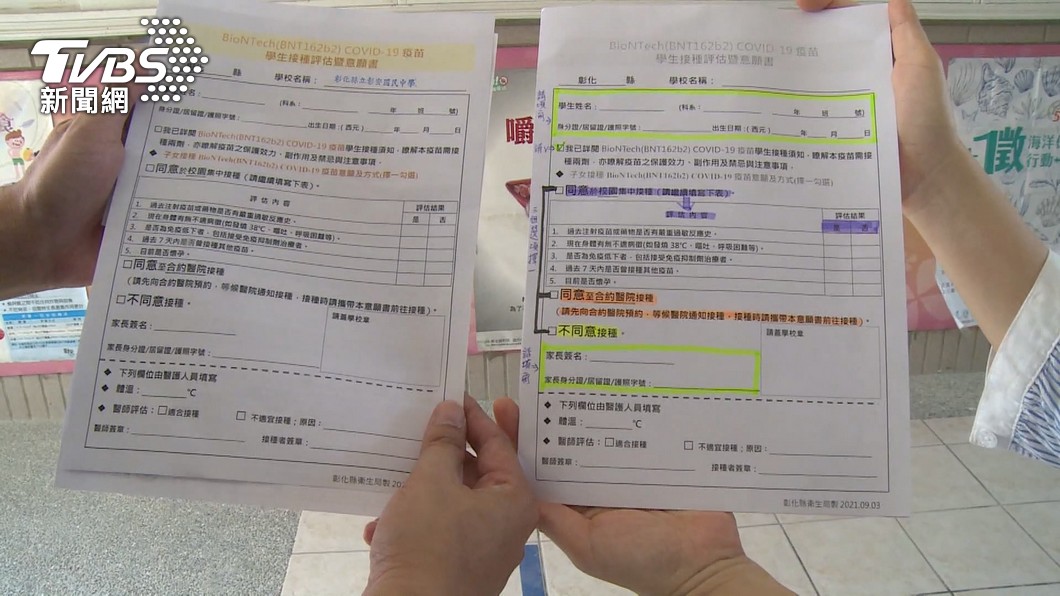 TVBS
新聞網
BioNTech(BNT162b2) COVID-19 疫苗
學生接種評估暨意願書
縣 學校名稱： 彰化縣立彰安國民中學
名：
(科系： 年 班 號)
身分證/居留證/護照字號： 出生日期：(西元) 年 月 日
□我已詳閱 BioNTech(BNT162b2) COVID-19 疫苗學生接種須知，瞭解本疫苗需接
種兩劑，亦瞭解疫苗之保護效力、副作用及禁忌與注意事項。
❖ 子女接種 BioNTech(BNT162b2) COVID-19 疫苗意願及方式(擇一勾選)
□同意於校園集中接種（請繼續填寫下表）。
評估內容 評估結果
是 否
1. 過去注射疫苗或藥物是否有嚴重過敏反應史。
2. 現在身體有無不適病徵(如發燒 38℃、嘔吐、呼吸困難等)。
3. 是否為免疫低下者，包括接受免疫抑制劑治療者。
4. 過去 7 天內是否曾接種其他疫苗。
5. 目前是否懷孕。
□同意至合約醫院接種
(請先向合約醫院預約，等候醫院通知接種，接種時請攜帶本意願書前往接種)。
□不同意接種。
請蓋學校章
家長簽名：
家長身分證/居留證/護照字號：
❖ 下列欄位由醫護人員填寫
❖ 體溫： ℃
❖ 醫師評估：□適合接種 □ 不適宜接種；原因：
醫師簽章： 接種者簽章：
彰化縣衛生局製 202
BioNTech(BNT162b2) COVID-19 疫苗
學生接種評估暨意願書
彰化 縣 學校名稱：
學生姓名： (科系： 年 班 號)
身分證/居留證/護照字號： 出生日期：(西元) 年 月 日
☑我已詳閱 BioNTech(BNT162b2) COVID-19 疫苗學生接種須知，瞭解本疫苗需接
種兩劑，亦瞭解疫苗之保護效力、副作用及禁忌與注意事項。
❖ 子女接種 BioNTech(BNT162b2) COVID-19 疫苗意願及方式(擇一勾選)
□同意於校園集中接種（請繼續填寫下表）。
評估內容 評估結果
是 否
1. 過去注射疫苗或藥物是否有嚴重過敏反應史。
2. 現在身體有無不適病徵(如發燒 38℃、嘔吐、呼吸困難等)。
3. 是否為免疫低下者，包括接受免疫抑制劑治療者。
4. 過去 7 天內是否曾接種其他疫苗。
5. 目前是否懷孕。
□同意至合約醫院接種
(請先向合約醫院預約，等候醫院通知接種，接種時請攜帶本意願書前往接種)。
□不同意接種。
請蓋學校章
家長簽名：
家長身分證/居留證/護照字號：
❖ 下列欄位由醫護人員填寫
❖ 體溫： ℃
❖ 醫師評估：□適合接種 □ 不適宜接種；原因：
醫師簽章： 接種者簽章：
彰化縣衛生局製 2021.09.03
嚼
徵
海洋
行動